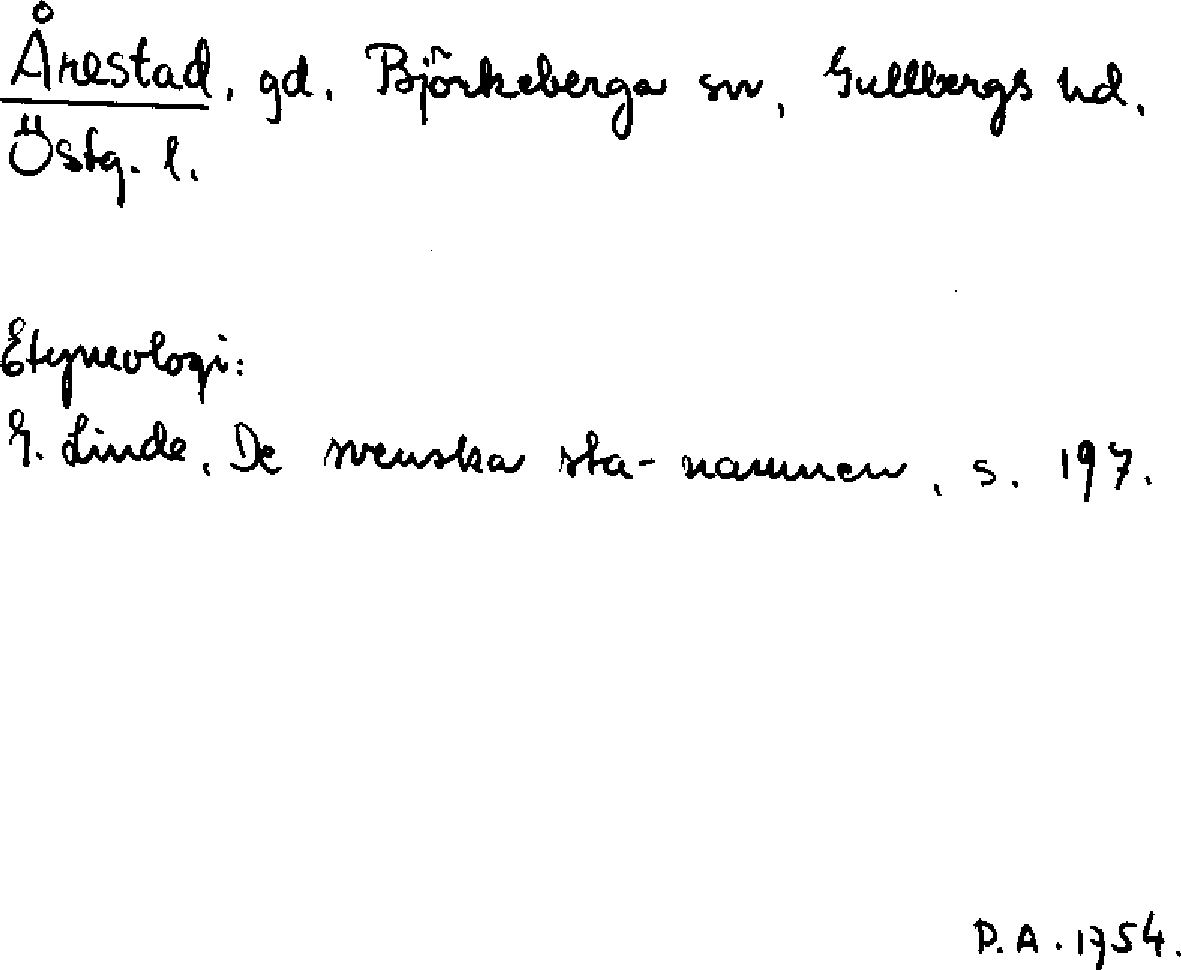 Årestad, gd, Björkeberga sn, Gullbergs hd,
Östg. l.
Etymologi:
G. Linde, De svenska sta-namnen, s. 197.
P.A. 1954.